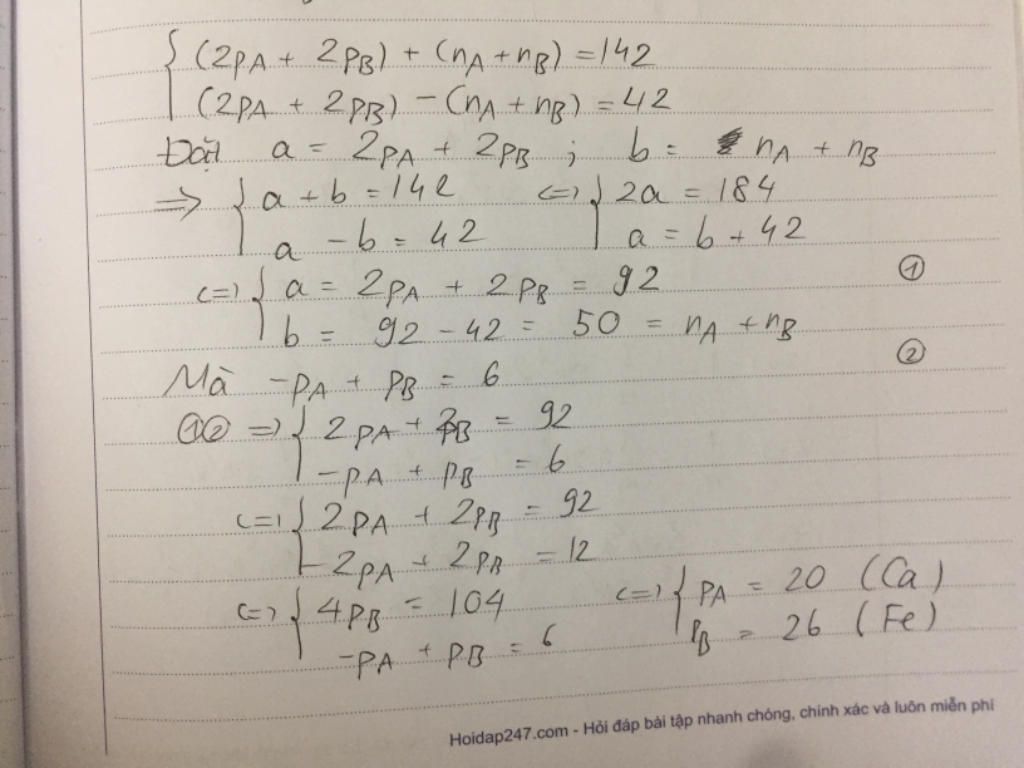 { (2pA + 2pB) + (nA + nB) = 142
(2pA + 2pB) - (nA + nB) = 42
Đặt a = 2pA + 2pB ; b = nA + nB
=> { a + b = 142 <=> { 2a = 184
a - b = 42 a = b + 42
<=> { a = 2pA + 2pB = 92 ①
b = 92 - 42 = 50 = nA + nB
Mà -pA + pB = 6 ②
①② => { 2pA + 2pB = 92
-pA + pB = 6
<=> { 2pA + 2pB = 92
-2pA + 2pB = 12
<=> { 4pB = 104 <=> { pA = 20 (Ca)
-pA + pB = 6 pB = 26 (Fe)
Hoidap247.com - Hỏi đáp bài tập nhanh chóng, chính xác và luôn miễn phí